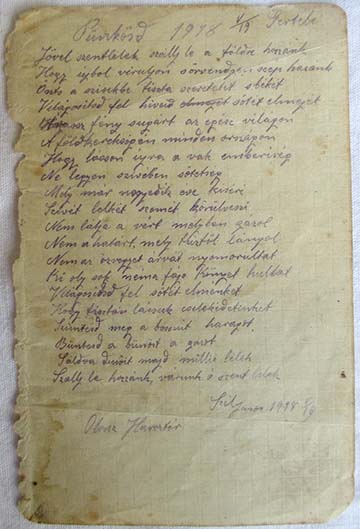 Pünkösd 1918 V/19
Jövel szentlélek szállj le a földre hozzánk
Hogy ujbol viruljon szép hazánk
Önts a szivekbe tiszta szeretetet s békét
Világositsd fel hiveid sötét elméjét
fény sugárt az egész világon
A földkerekségen minden órnapon
Hogy lásson ujra a vak emberiség
Ne legyen szivében sötétség
Mely már negyedik éve kisére
Szivét lelkét szemét körülveszi
Nem látja a vért melyben gázol
Nem a határt, mely lángol
Nem az özvegyet árvát nyomorultat
Ki oly sok néma fájó könyet hullat
Világositsd fel sötét elménket
Hogy tisztán lássuk cselekedetünket
Szüntesd meg a boszut haragot.
Büntesd a bünöst a gazt
Áldva dicsőit majd millió lélek
Szállj le hozzánk, várunk ó szent lélek
1918
Olasz Harctér